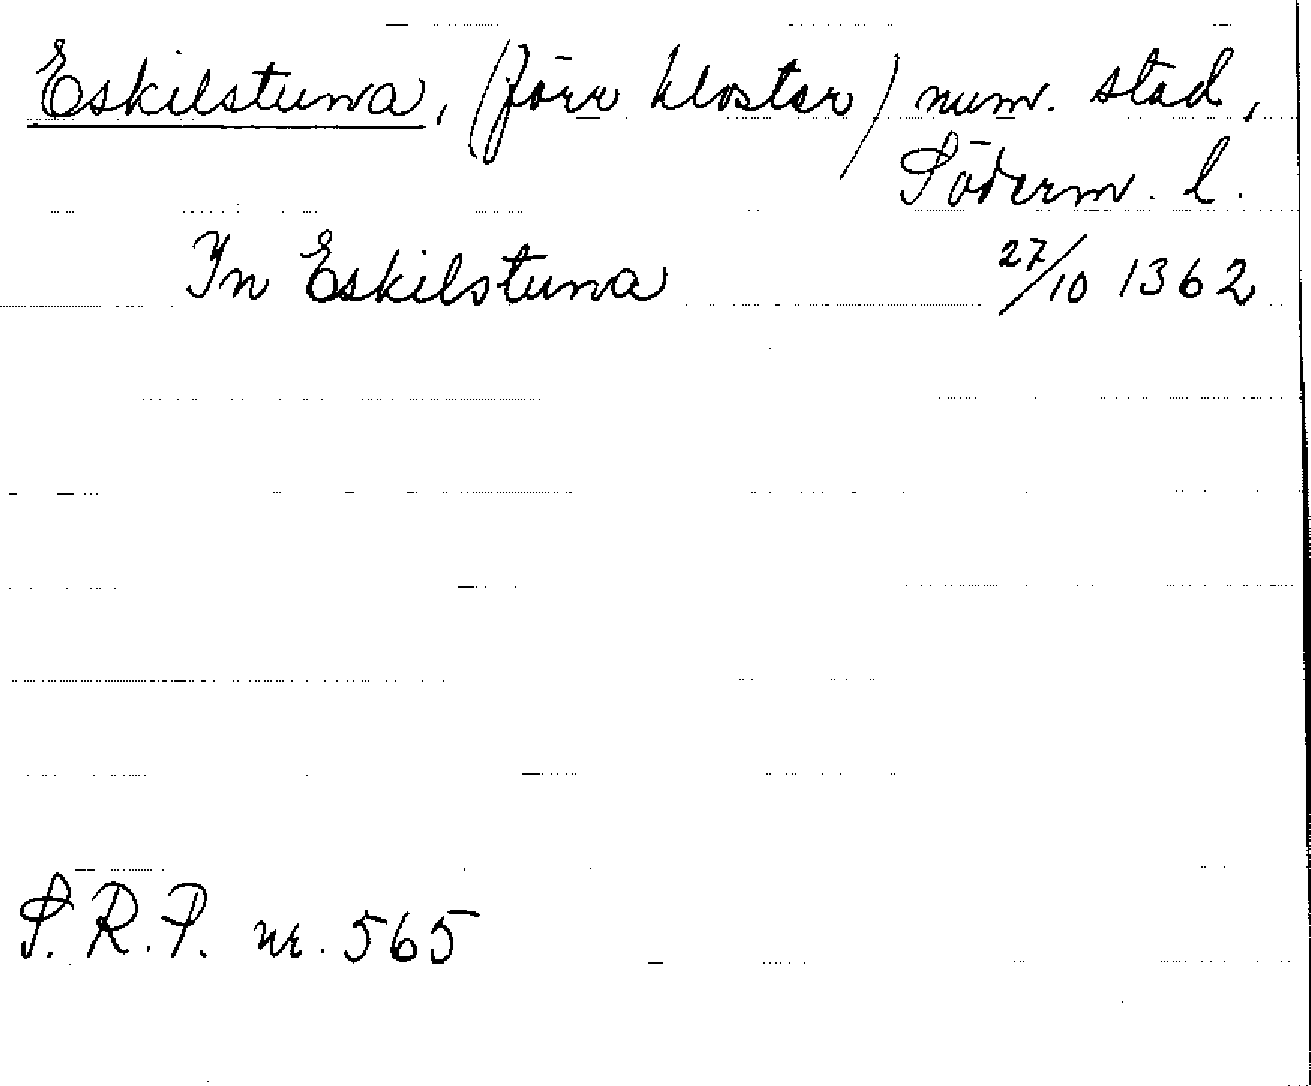 Eskilstuna, (förr kloster) num. stad,
Söderm. l.
In Eskilstuna 27/10 1362
S.R.P. nr. 565